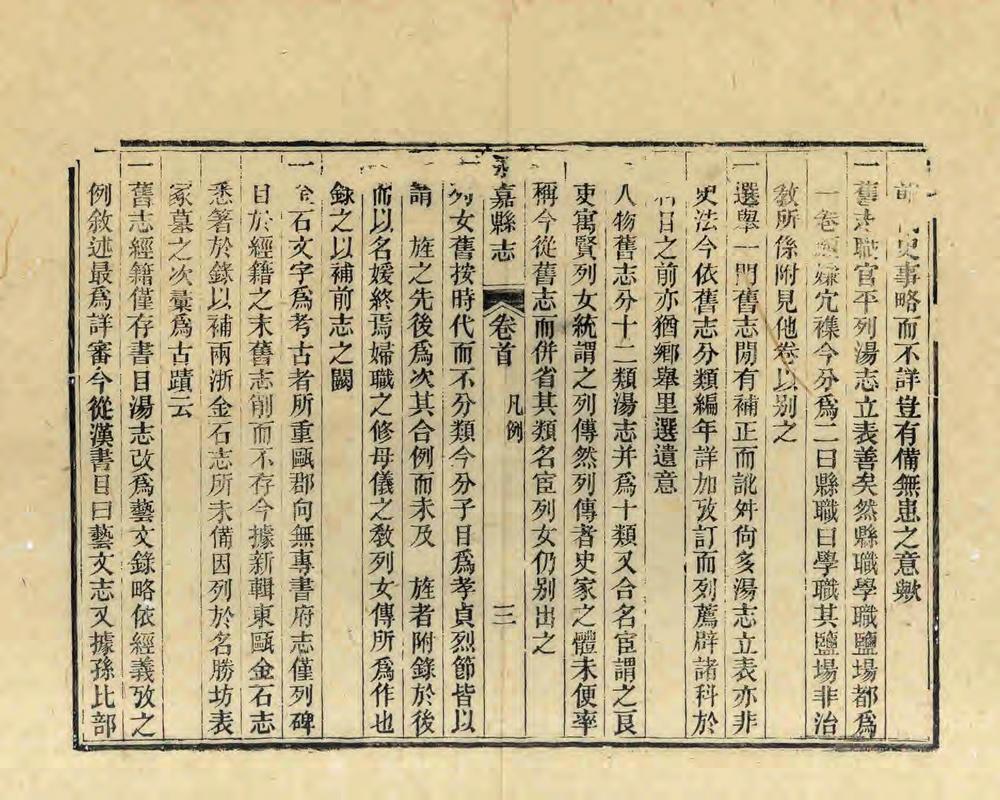 前　史事略而不詳豈有備無患之意歟
一舊志職官平列湯志立表善矣然縣職學職鹽場都爲
一卷頗嫌冗襍今分爲二曰縣職曰學職其鹽場非治
敎所係附見他卷以别之
一選舉一門舊志閒有補正而訛舛尙多湯志立表亦非
史法今依舊志分類編年詳加攷訂而列薦辟諸科於
目之前亦猶鄉舉里選遺意
人物舊志分十二類湯志并爲十類又合名宦謂之良
吏寓賢列女統謂之列傳然列傳者史家之體未便率
稱今從舊志而併省其類名宦列女仍别出之
永嘉縣志　卷首　凡例　三
一列女舊按時代而不分類今分子目爲孝貞烈節皆以
請　旌之先後爲次其合例而未及　旌者附錄於後
而以名媛終焉婦職之修母儀之敎列女傳所爲作也
録之以補前志之闕
一金石文字爲考古者所重甌郡向無專書府志僅列碑
目於經籍之末舊志削而不存今據新輯東甌金石志
悉著於錄以補兩浙金石志所未備因列於名勝坊表
冢墓之次彙爲古蹟云
一舊志經籍僅存書目湯志改爲藝文錄略依經義攷之
例敘述最爲詳審今從漢書目曰藝文志又據孫比部